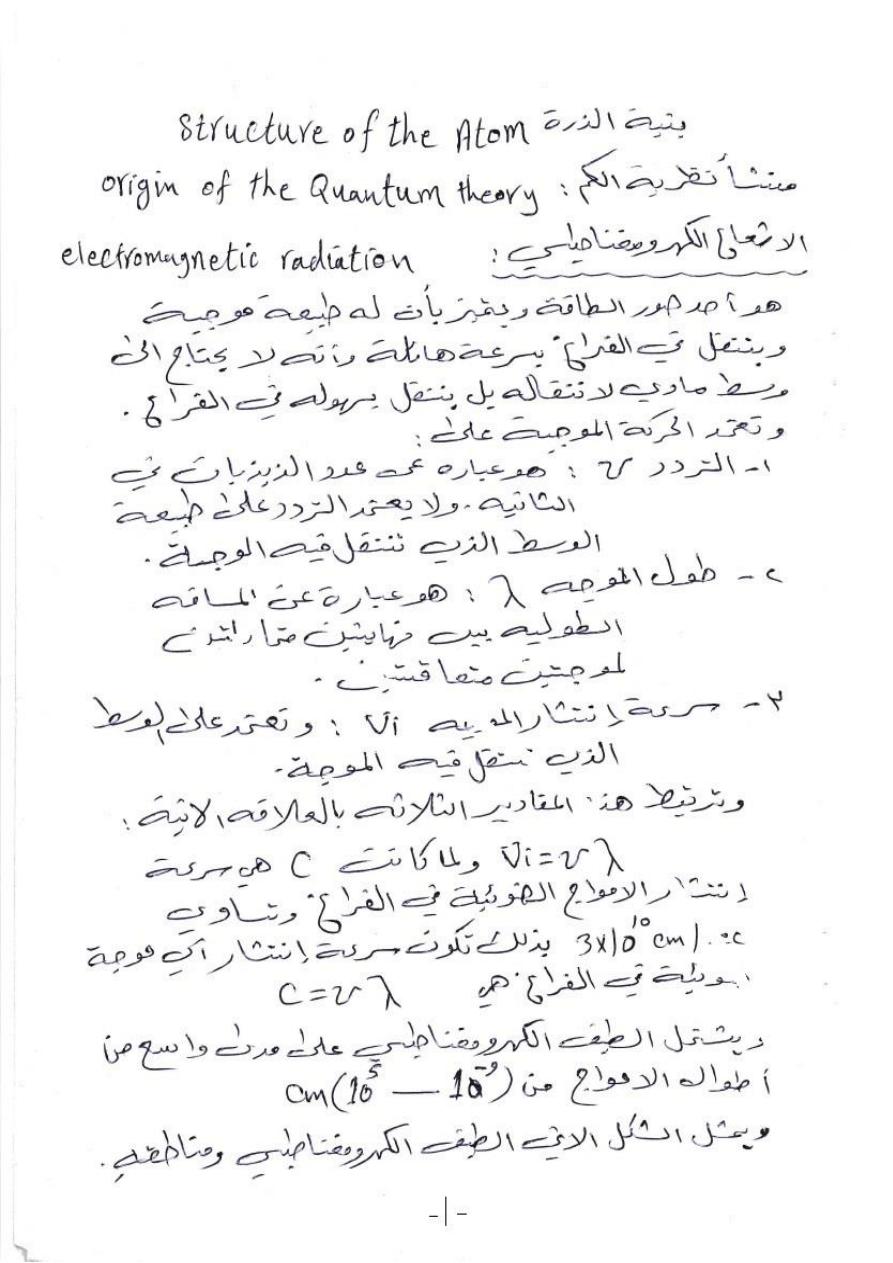 بنية الذرة Structure of the Atom
منشأ نظرية الكم : origin of the Quantum theory
الاشعاع الكهرومغناطيسي : electromagnetic radiation
هو أحد صور الطاقة ويتميز بأن له طبيعة موجية
وينتقل في الفراغ بسرعة هائلة وأنه لا يحتاج الى
وسط مادي لانتقاله بل ينتقل بسهوله في الفراغ .
وتعتمد الحركة الموجية على :
١- التردد ν : هو عباره عن عدد الذبذبات في
الثانيه . ولا يعتمد التردد على طبيعة
الوسط الذي تنتقل فيه الموجة .
٢- طول الموجه λ : هو عبارة عن المسافه
الطوليه بين نهايتين متماثلتين
لموجتين متعاقبتين .
٣- سرعة إنتشار Vi : وتعتمد على الوسط
الذي تنتقل فيه الموجة .
وترتبط هذه المقادير الثلاثه بالعلاقه الاتية :
Vi = ν λ ولما كانت C هي سرعة
إنتشار الامواج الضوئية في الفراغ وتساوي
3x10¹⁰ cm/ بذلك تكون سرعة إنتشار أي موجة
في الفراغ هي C = ν λ
ويشتمل الطيف الكهرومغناطيسي على مدى واسع من
أطوال الامواج من cm(10⁵ — 10⁻⁹)
ويمثل الشكل الاتي الطيف الكهرومغناطيسي ومناطقه .
-1-